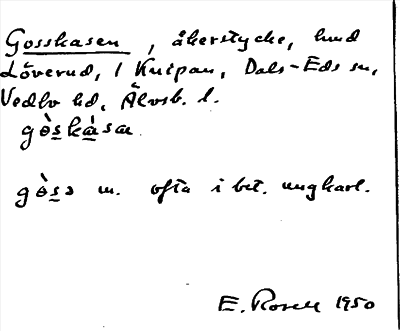 Gosskasen, åkerstycke, hmd
Löverud, 1 Knipan, Dals-Eds sn,
Vedbo hd, Älvsb. l.
gòskàsa
gòsə m. ofta i bet. ungkarl.
E. Rosell 1950